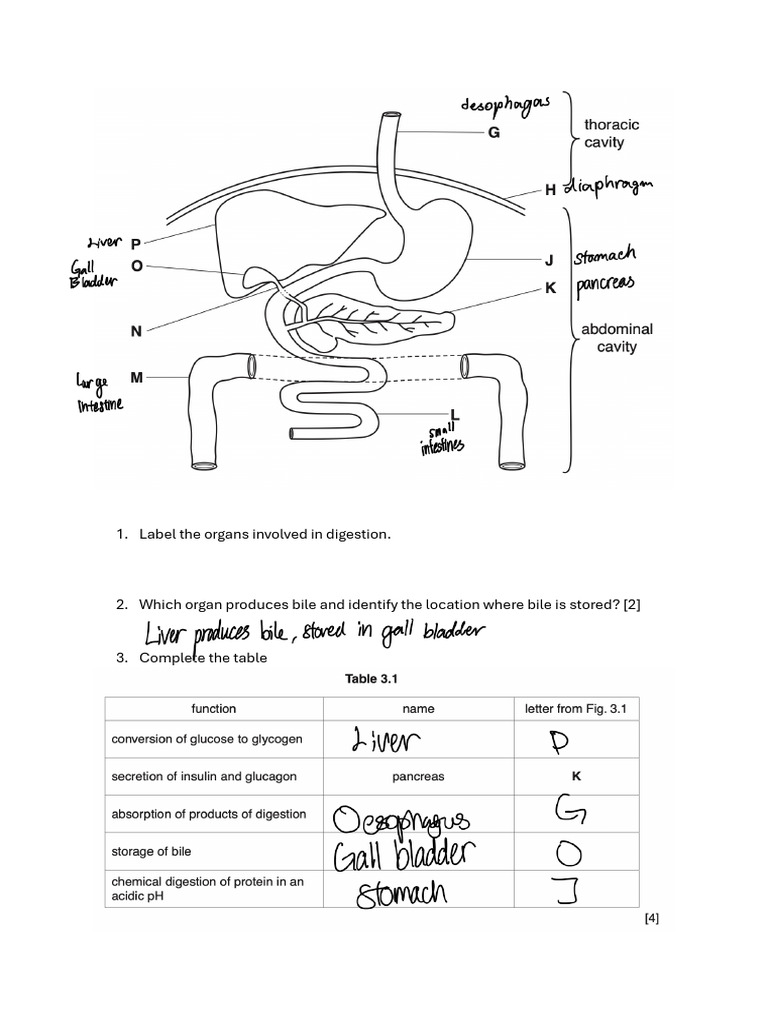 desophagas
G
thoracic
cavity
H diaphragm
Liver P
Gall
Bladder
O
J stomach
K pancreas
N
abdominal
cavity
Large
intestine
M
L
small
intestines
1. Label the organs involved in digestion.
2. Which organ produces bile and identify the location where bile is stored? [2]
Liver produces bile, stored in gall bladder
3. Complete the table
Table 3.1
function name letter from Fig. 3.1
conversion of glucose to glycogen Liver P
secretion of insulin and glucagon pancreas K
absorption of products of digestion Oesophagus G
storage of bile Gall bladder O
chemical digestion of protein in an
acidic pH
stomach J
[4]